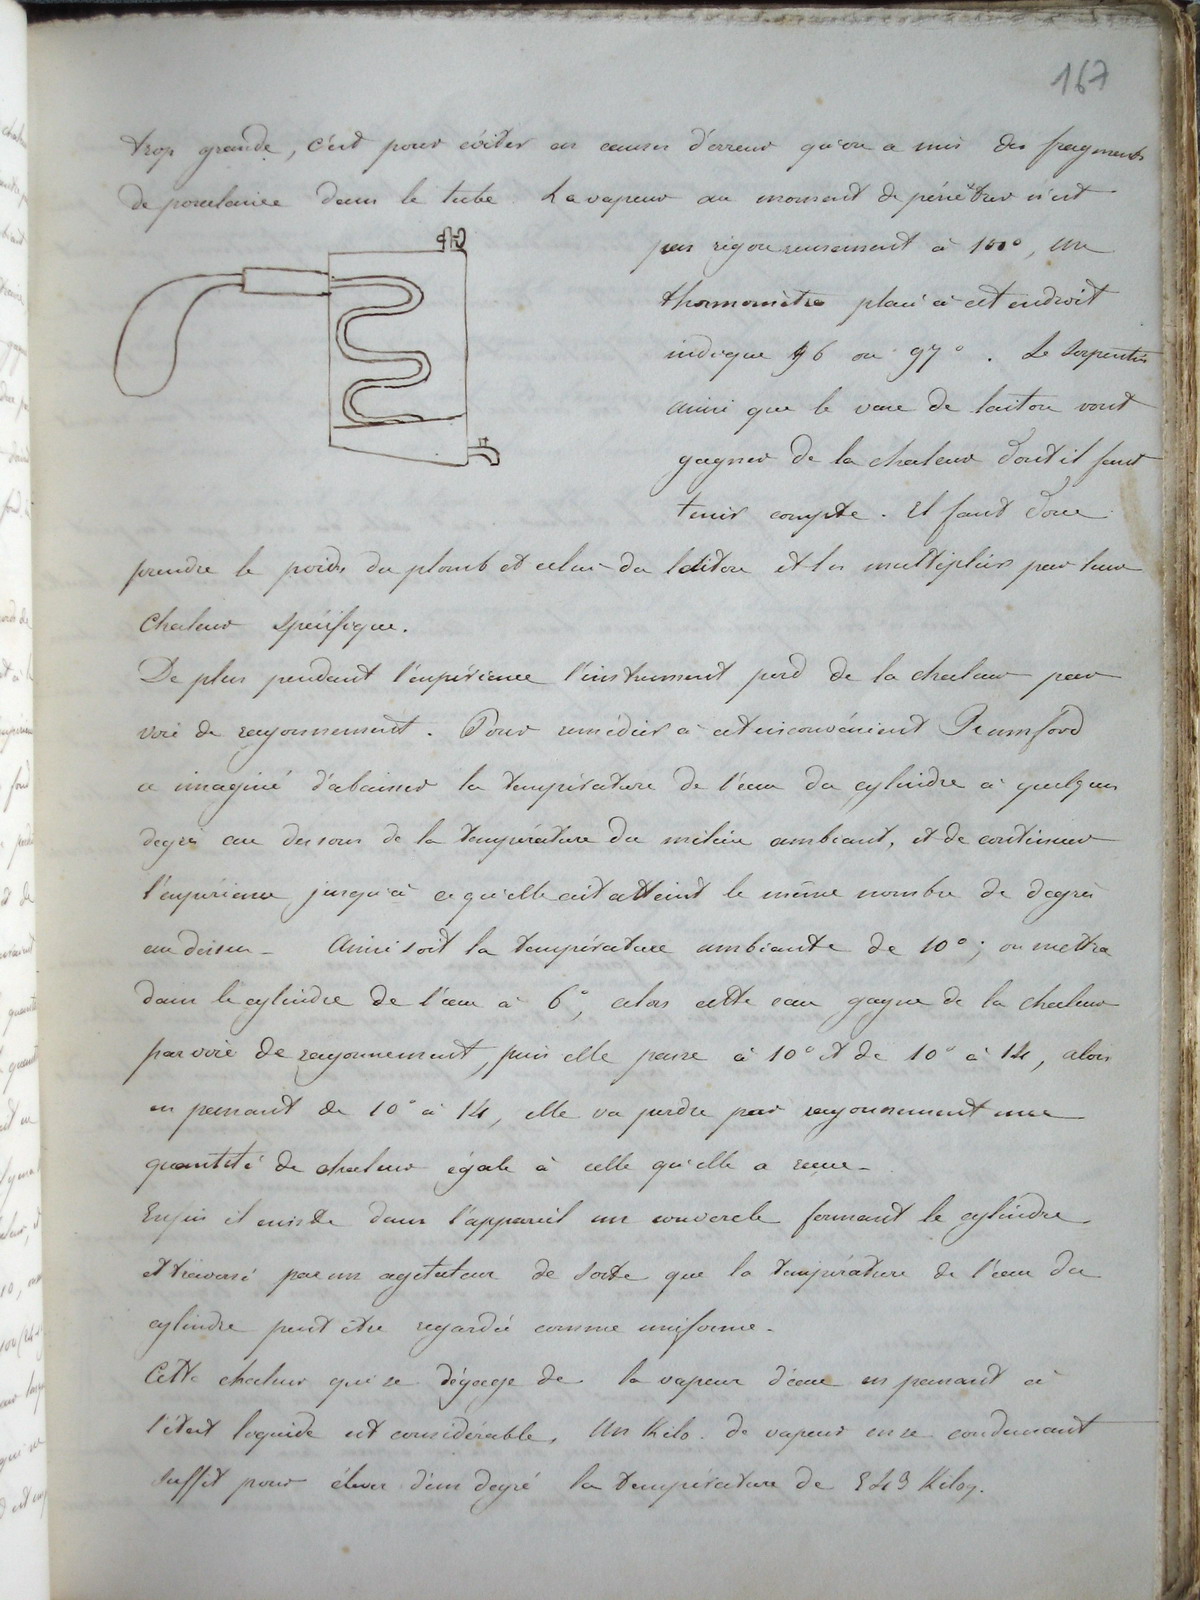 167
trop grande, c'est pour éviter ces causes d'erreur qu'on a mis des fragments
de porcelaine dans le tube. La vapeur au moment de pénétrer n'est
pas rigoureusement à 100°, un
thermomètre placé à cet endroit
indique 96 ou 97°. Le serpentin
ainsi que le vase de laiton vont
gagner de la chaleur dont il faut
tenir compte. Il faut donc
prendre le poids du plomb et celui du laiton et les multiplier par leur
chaleur spécifique.
De plus pendant l'expérience l'instrument perd de la chaleur par
voie de rayonnement. Pour remédier à cet inconvénient Rumford
a imaginé d'abaisser la température de l'eau du cylindre à quelques
degrés au dessous de la température du milieu ambiant, et de continuer
l'expérience jusqu'à ce qu'elle ait atteint le même nombre de degrés
au dessus - Ainsi soit la température ambiante de 10°; on mettra
dans le cylindre de l'eau à 6°, alors cette eau gagne de la chaleur
par voie de rayonnement, puis elle passe à 10° et de 10° à 14, alors
en passant de 10° à 14, elle va perdre par rayonnement une
quantité de chaleur égale à celle qu'elle a reçue -
Enfin il existe dans l'appareil un couvercle fermant le cylindre
et traversé par un agitateur de sorte que la température de l'eau du
cylindre peut être regardée comme uniforme -
Cette chaleur qui se dégage de la vapeur d'eau en passant à
l'état liquide est considérable. Un Kilo. de vapeur en se condensant
suffit pour élever d'un degré la température de 543 Kilog.